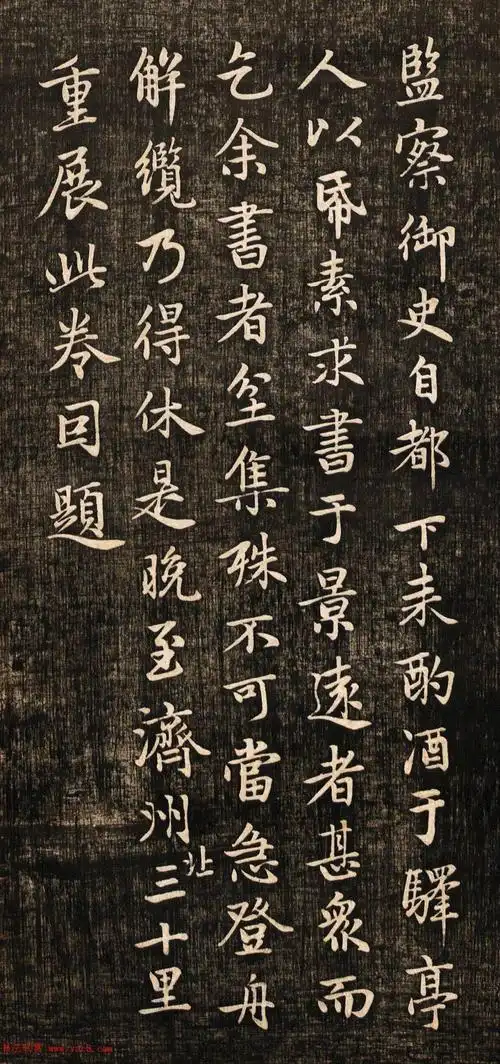 監察御史自都下来酌酒于驛亭
人以帋素求書于景遠者甚衆而
乞余書者坌集殊不可當急登舟
解纜乃得休是晚至濟州北三十里
重展此卷囙題